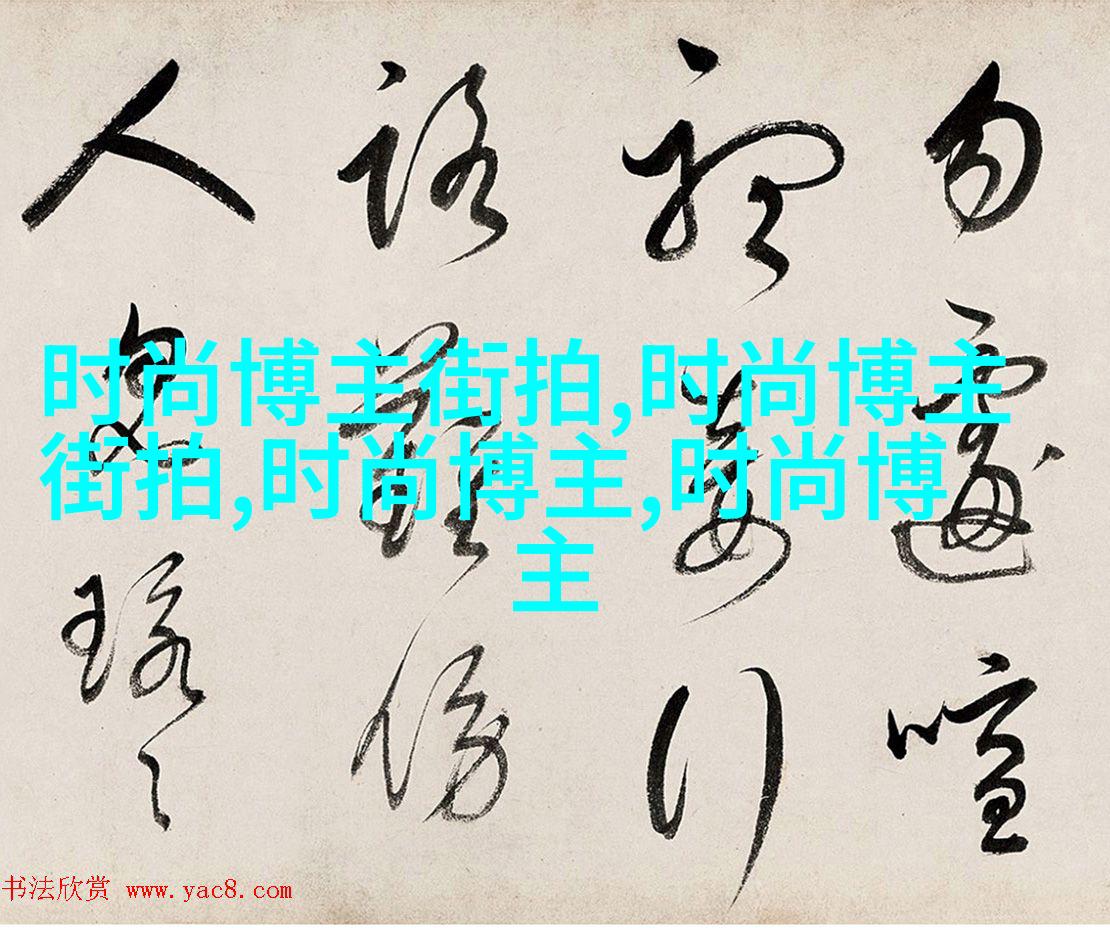 时尚博主街拍,时尚博主
街拍,时尚博主,时尚博
主
勿遽喧
行
路難傍
人
书法欣赏 www.yac8.com